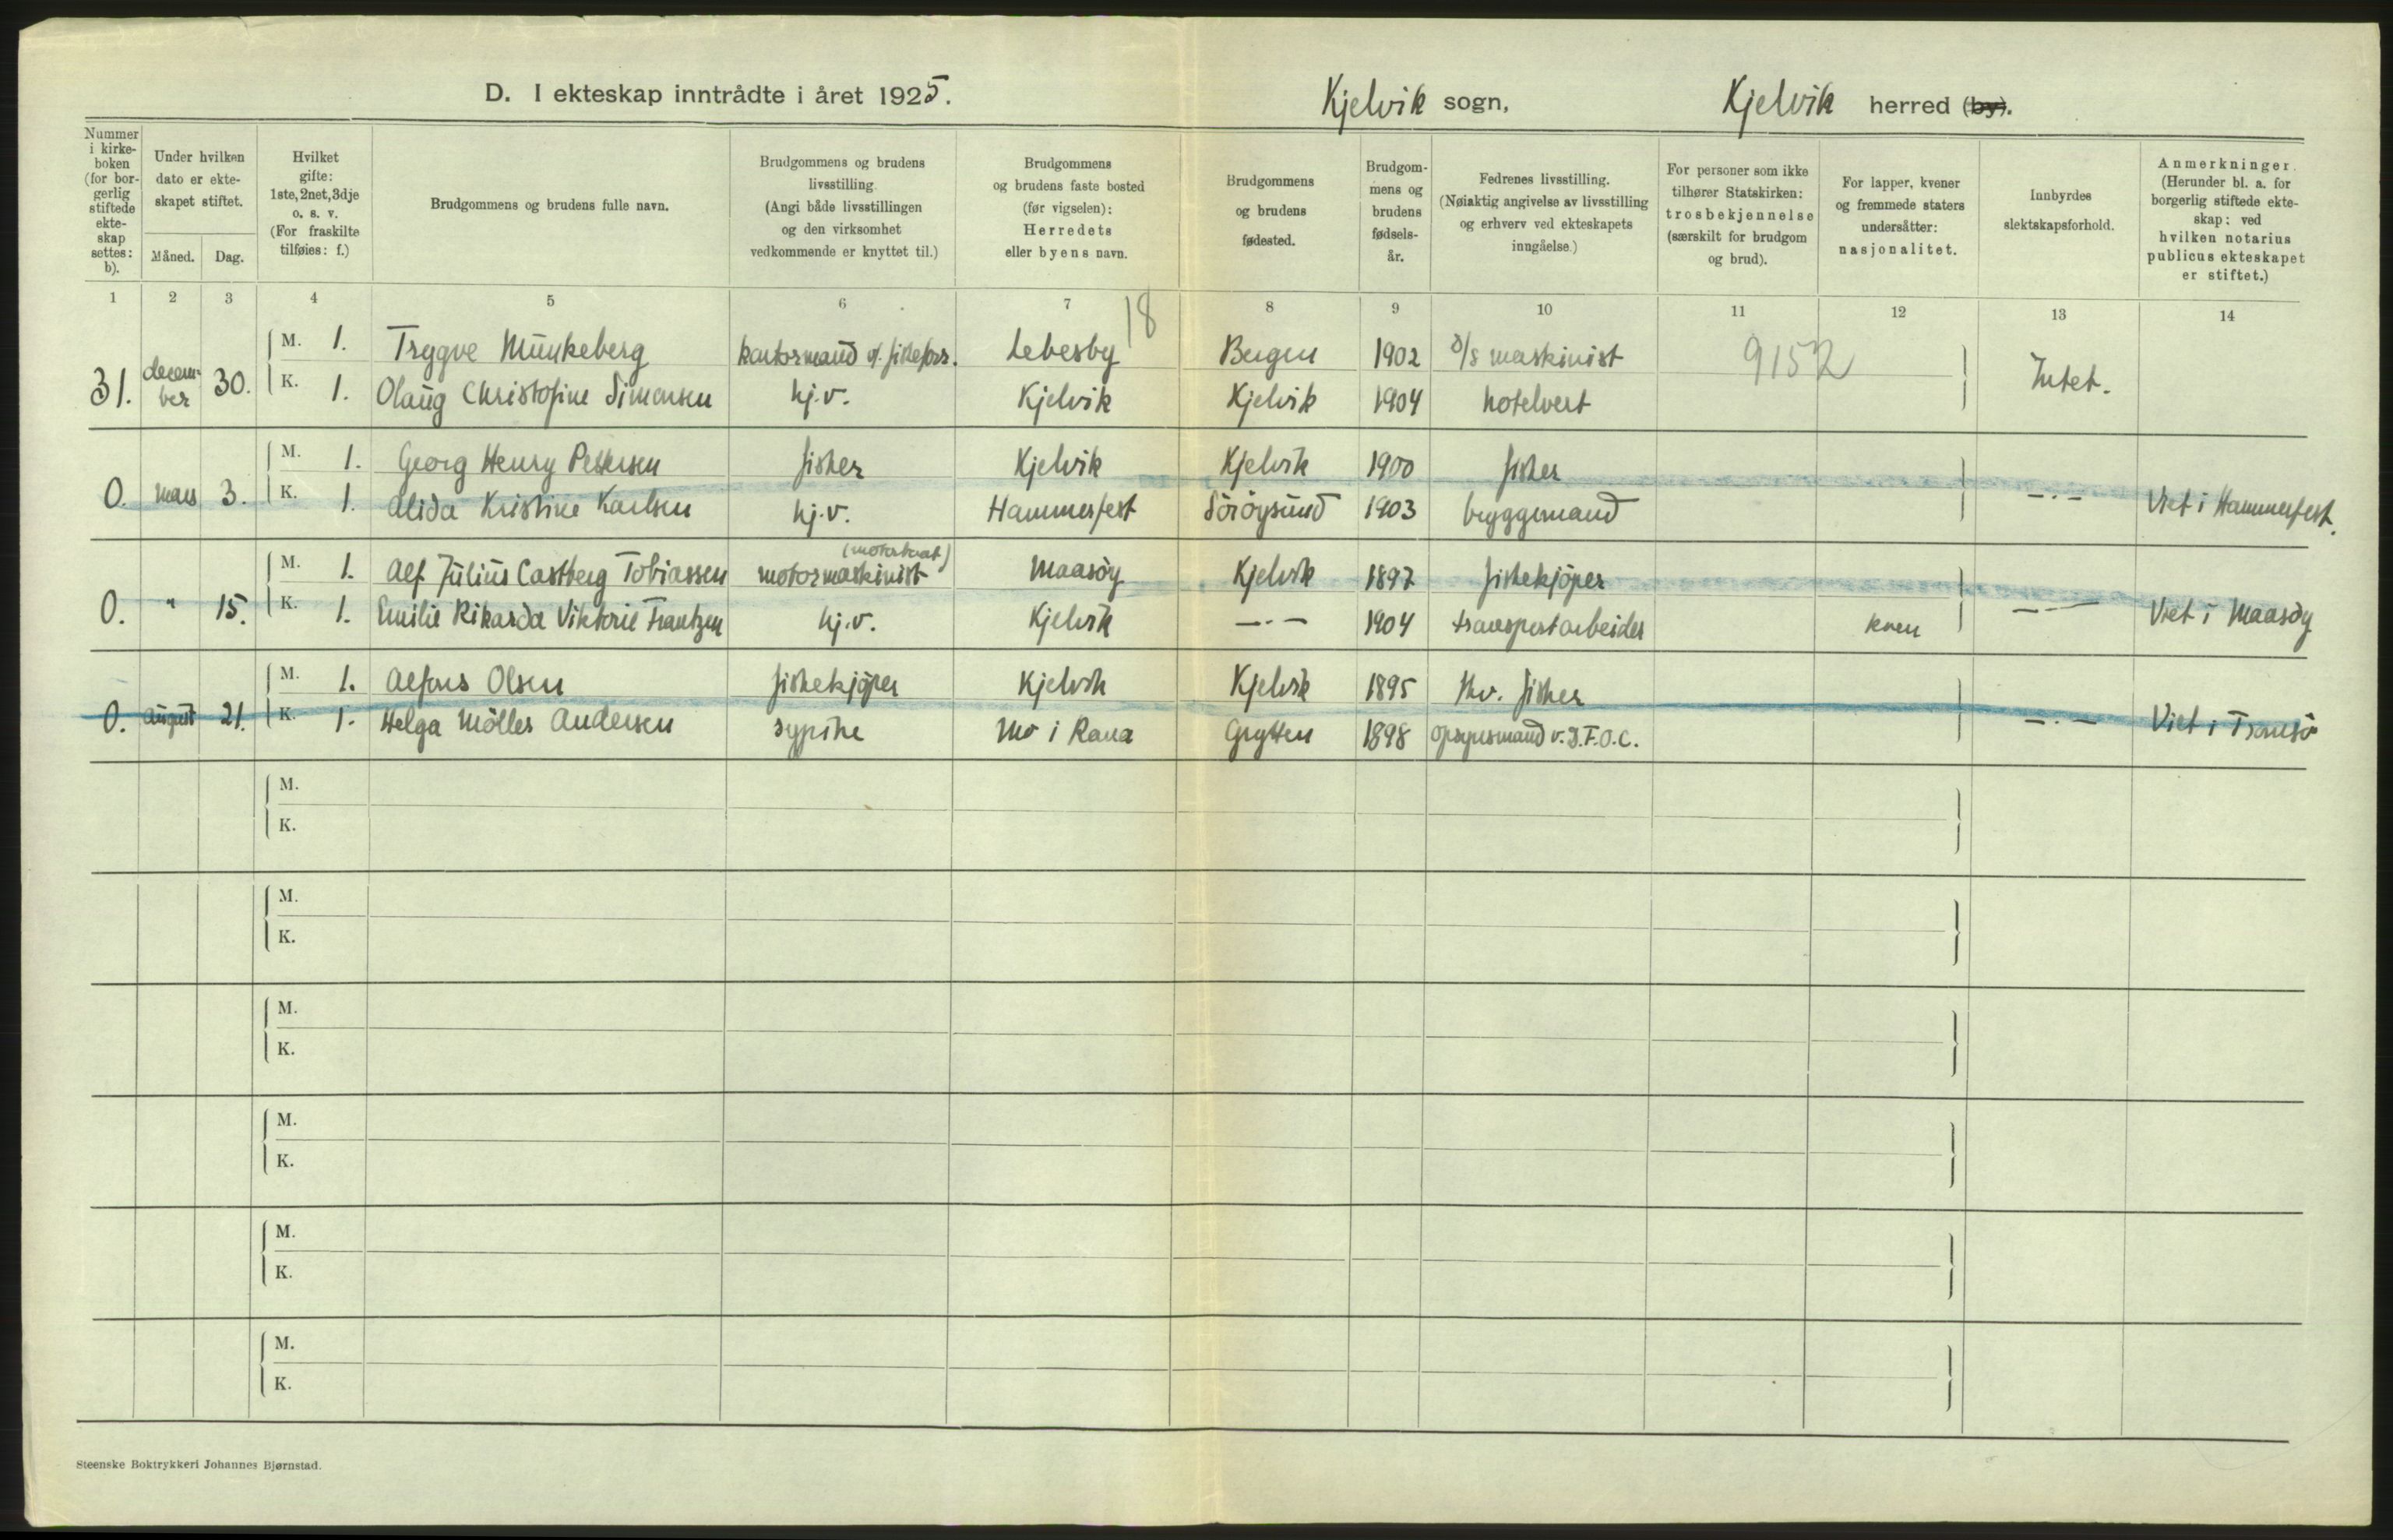 D. I ekteskap inntrådte i året 1925.
Kjelvik sogn, Kjelvik herred (by).
Nummer i kirke-boken (for bor-gerlig stiftede ekte-skap settes: b).
Under hvilken dato er ekte-skapet stiftet.
Måned. Dag.
Hvilket gifte: 1ste, 2net, 3dje o. s. v. (For fraskilte tilføies: f.)
Brudgommens og brudens fulle navn.
Brudgommens og brudens livsstilling. (Angi både livsstillingen og den virksomhet vedkommende er knyttet til.)
Brudgommens og brudens faste bosted (før vigselen): Herredets eller byens navn.
Brudgommens og brudens fødested.
Brudgom-mens og brudens fødsels-år.
Fedrenes livsstilling. (Nøiaktig angivelse av livsstilling og erhverv ved ekteskapets inngåelse.)
For personer som ikke tilhører Statskirken: trosbekjennelse (særskilt for brudgom og brud).
For lapper, kvener og fremmede staters undersåtter: nasjonalitet.
Innbyrdes slektskapsforhold.
Anmerkninger. (Herunder bl. a. for borgerlig stiftede ekte-skap: ved hvilken notarius publicus ekteskapet er stiftet.)
1 2 3 4 5 6 7 8 9 10 11 12 13 14
18
31. decem-ber 30.
M. 1. Trygve Munkeberg kontormand v/ fiskeforr. Lebesby Bergen 1902 d/s maskinist 9152
K. 1. Olaug Christofine Simensen hj.v. Kjelvik Kjelvik 1904 hotelvert Intet.
0. mars 3.
M. 1. Georg Henry Pettersen fisker Kjelvik Kjelvik 1900 fisker
K. 1. Alida Kristine Karlsen hj.v. Hammerfest Söröysund 1903 bryggemand —·— Viet i Hammerfest.
0. " 15.
M. 1. Alf Julius Castberg Tobiassen motormaskinist (motorbaat) Maasöy Kjelvik 1897 fiskekjöper
K. 1. Emilie Rikarda Viktorie Frantzen hj.v. Kjelvik —·— 1904 transportarbeider kven —·— Viet i Maasöy
0. august 21.
M. 1. Alfons Olsen fiskekjöper Kjelvik Kjelvik 1895 fhv. fisker
K. 1. Helga Möller Andersen sypike Mo i Rana Grytten 1898 opsynsmand v. D.F.O.C. —·— Viet i Tromsö
M.
K.
M.
K.
M.
K.
M.
K.
M.
K.
M.
K.
Steenske Boktrykkeri Johannes Bjørnstad.